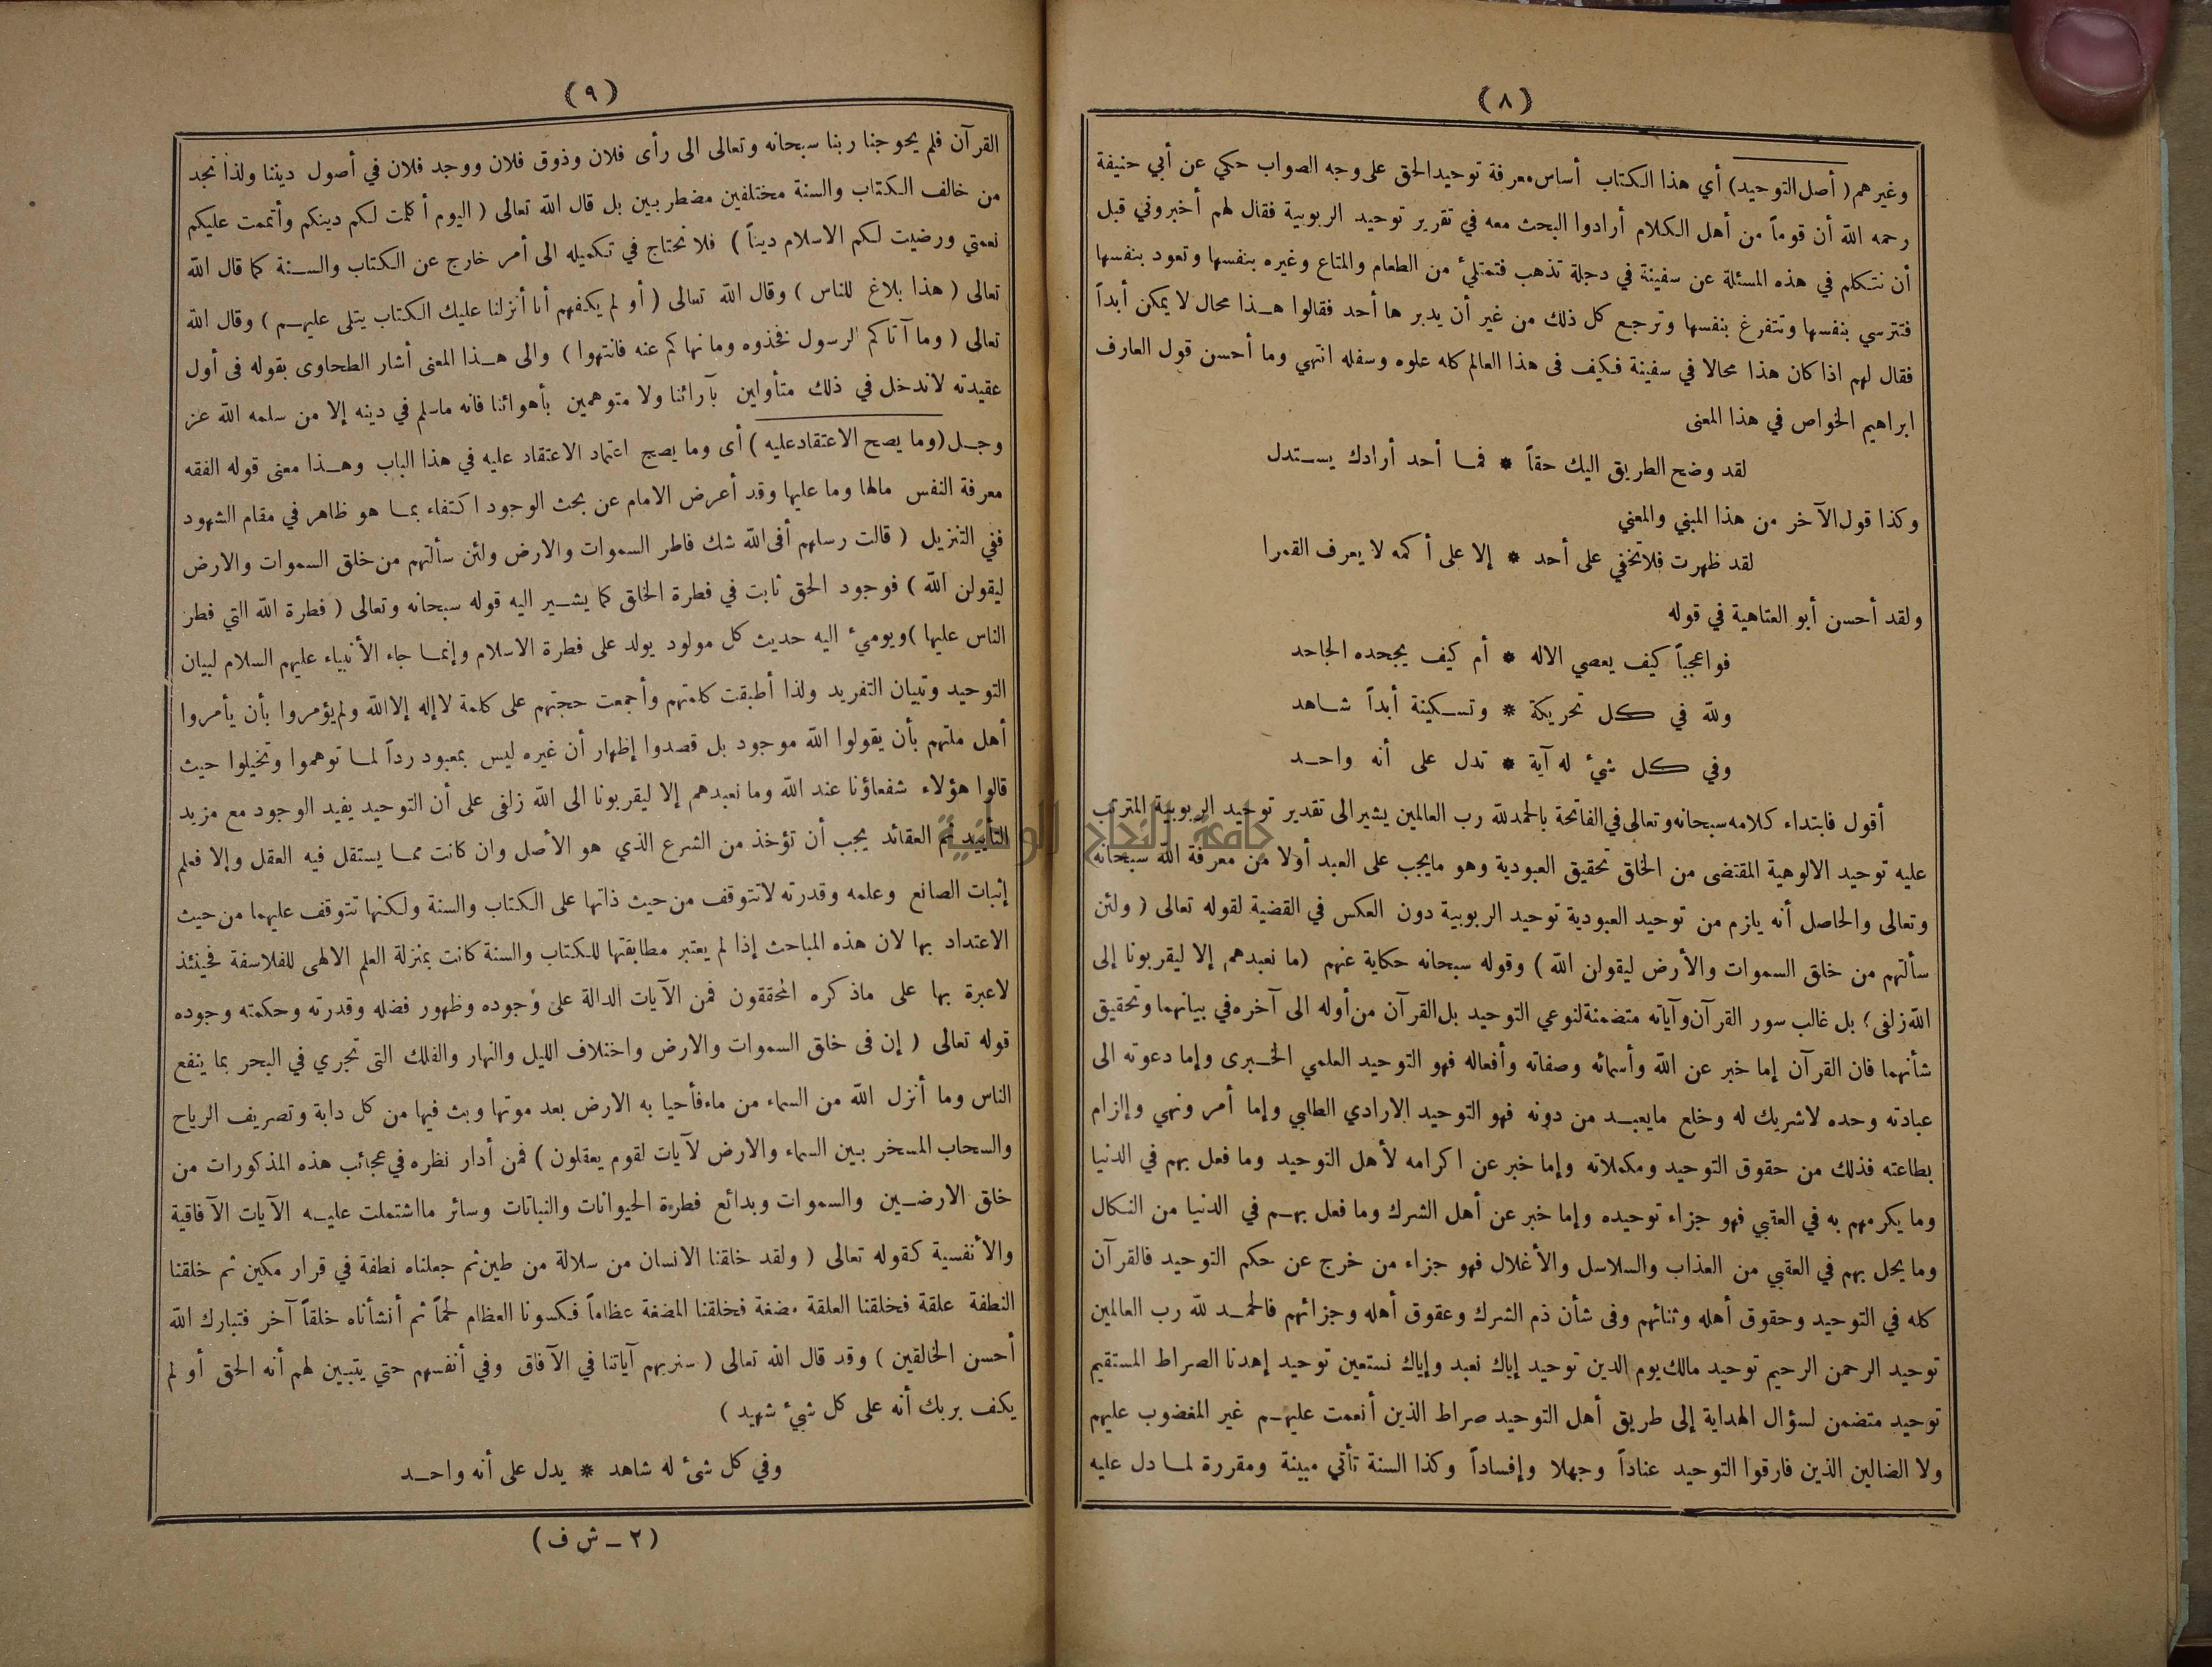 (٨)
وغيرهم (أصل التوحيد) أي هذا الكتاب أساس معرفة توحيد الحق على وجه الصواب حكي عن أبي حنيفة
رحمه الله أن قوماً من أهل الكلام أرادوا البحث معه في تقرير توحيد الربوبية فقال لهم أخبروني قبل
أن نتكلم في هذه المسئلة عن سفينة في دجلة تذهب فتمتلئ من الطعام والمتاع وغيره بنفسها وتعود بنفسها
فترسي بنفسها وتتفرغ بنفسها وترجع كل ذلك من غير أن يدبرها أحد فقالوا هذا محال لا يمكن أبداً
فقال لهم اذا كان هذا محالا في سفينة فكيف فى هذا العالم كله علوه وسفله انتهي وما أحسن قول العارف
ابراهيم الخواص في هذا المعنى
لقد وضح الطريق اليك حقاً * فما أحد أرادك يستدل
وكذا قول الآخر من هذا المبني والمعني
لقد ظهرت فلا تخفي على أحد * إلا على أكمه لا يعرف القمرا
ولقد أحسن أبو العتاهية في قوله
فواعجباً كيف يعصي الاله * أم كيف يجحده الجاحد
ولله في كل تحريكة * وتسكينة أبداً شاهد
وفي كل شيء له آية * تدل على أنه واحد
أقول فابتداء كلامه سبحانه وتعالى في الفاتحة بالحمد لله رب العالمين يشير الى تقدير توحيد الربوبية المترتب
عليه توحيد الالوهية المقتضى من الخلق تحقيق العبودية وهو مايجب على العبد أولا من معرفة الله سبحانه
وتعالى والحاصل أنه يلزم من توحيد العبودية توحيد الربوبية دون العكس في القضية لقوله تعالى ( ولئن
سألتهم من خلق السموات والأرض ليقولن الله ) وقوله سبحانه حكاية عنهم (ما نعبدهم إلا ليقربونا إلى
الله زلفى) بل غالب سور القرآن وآياته متضمنة لنوعي التوحيد بل القرآن من أوله الى آخره في بيانهما وتحقيق
شأنهما فان القرآن إما خبر عن الله وأسمائه وصفاته وأفعاله فهو التوحيد العلمي الخبرى وإما دعوته الى
عبادته وحده لاشريك له وخلع مايعبد من دونه فهو التوحيد الارادي الطلبي وإما أمر ونهي وإلزام
بطاعته فذلك من حقوق التوحيد ومكملاته وإما خبر عن اكرامه لأهل التوحيد وما فعل بهم في الدنيا
وما يكرمهم به في العقبي فهو جزاء توحيده وإما خبر عن أهل الشرك وما فعل بهم في الدنيا من النكال
وما يحل بهم في العقبي من العذاب والسلاسل والأغلال فهو جزاء من خرج عن حكم التوحيد فالقرآن
كله في التوحيد وحقوق أهله وثنائهم وفى شأن ذم الشرك وعقوق أهله وجزائهم فالحمد لله رب العالمين
توحيد الرحمن الرحيم توحيد مالك يوم الدين توحيد إياك نعبد وإياك نستعين توحيد إهدنا الصراط المستقيم
توحيد متضمن لسؤال الهداية إلى طريق أهل التوحيد صراط الذين أنعمت عليهم غير المغضوب عليهم
ولا الضالين الذين فارقوا التوحيد عناداً وجهلا وإفساداً وكذا السنة تأتي مبينة ومقررة لما دل عليه
(٩)
القرآن فلم يحوجنا ربنا سبحانه وتعالى الى رأى فلان وذوق فلان ووجد فلان في أصول ديننا ولذا تجد
من خالف الكتاب والسنة مختلفين مضطربين بل قال الله تعالى ( اليوم أكملت لكم دينكم وأتممت عليكم
نعمتي ورضيت لكم الاسلام ديناً ) فلا نحتاج في تكميله الى أمر خارج عن الكتاب والسنة كما قال الله
تعالى ( هذا بلاغ للناس ) وقال الله تعالى ( أو لم يكفهم أنا أنزلنا عليك الكتاب يتلى عليهم ) وقال الله
تعالى ( وما آتاكم الرسول فخذوه وما نهاكم عنه فانتهوا ) والى هذا المعنى أشار الطحاوى بقوله فى أول
عقيدته لاندخل في ذلك متأولين بآرائنا ولا متوهمين بأهوائنا فانه ماسلم في دينه إلا من سلمه الله عز
وجل (وما يصح الاعتقاد عليه ) أى وما يصح اعتماد الاعتقاد عليه في هذا الباب وهذا معنى قوله الفقه
معرفة النفس مالها وما عليها وقد أعرض الامام عن بحث الوجود اكتفاء بما هو ظاهر في مقام الشهود
ففي التنزيل ( قالت رسلهم أفى الله شك فاطر السموات والارض ولئن سألتهم من خلق السموات والارض
ليقولن الله ) فوجود الحق ثابت في فطرة الخلق كما يشير اليه قوله سبحانه وتعالى ( فطرة الله التي فطر
الناس عليها ) ويومئ اليه حديث كل مولود يولد على فطرة الاسلام وإنما جاء الأنبياء عليهم السلام لبيان
التوحيد وتبيان التفريد ولذا أطبقت كلمتهم وأجمعت حجتهم على كلمة لاإله إلاالله ولم يؤمروا بأن يأمروا
أهل ملتهم بأن يقولوا الله موجود بل قصدوا إظهار أن غيره ليس بمعبود رداً لما توهموا وتخيلوا حيث
قالوا هؤلاء شفعاؤنا عند الله وما نعبدهم إلا ليقربونا الى الله زلفى على أن التوحيد يفيد الوجود مع مزيد
التأييد ثم العقائد يجب أن تؤخذ من الشرع الذي هو الأصل وان كانت مما يستقل فيه العقل وإلا فعلم
إثبات الصانع وعلمه وقدرته لاتتوقف من حيث ذاتها على الكتاب والسنة ولكنها تتوقف عليهما من حيث
الاعتداد بها لان هذه المباحث إذا لم يعتبر مطابقتها للكتاب والسنة كانت بمنزلة العلم الالهى للفلاسفة فحينئذ
لاعبرة بها على ماذكره المحققون فمن الآيات الدالة على وجوده وظهور فضله وقدرته وحكمته وجوده
قوله تعالى ( إن فى خلق السموات والارض واختلاف الليل والنهار والفلك التى تجري في البحر بما ينفع
الناس وما أنزل الله من السماء من ماء فأحيا به الارض بعد موتها وبث فيها من كل دابة وتصريف الرياح
والسحاب المسخر بين السماء والارض لآيات لقوم يعقلون ) فمن أدار نظره في عجائب هذه المذكورات من
خلق الارضين والسموات وبدائع فطرة الحيوانات والنباتات وسائر مااشتملت عليه الآيات الآفاقية
والأنفسية كقوله تعالى ( ولقد خلقنا الانسان من سلالة من طين ثم جعلناه نطفة في قرار مكين ثم خلقنا
النطفة علقة فخلقنا العلقة مضغة فخلقنا المضغة عظاماً فكسونا العظام لحماً ثم أنشأناه خلقاً آخر فتبارك الله
أحسن الخالقين ) وقد قال الله تعالى ( سنريهم آياتنا في الآفاق وفي أنفسهم حتي يتبين لهم أنه الحق أو لم
يكف بربك أنه على كل شيء شهيد )
وفي كل شئ له شاهد * يدل على أنه واحد
(٢ ـ ش ف)
جامعة النجاح الوطنية